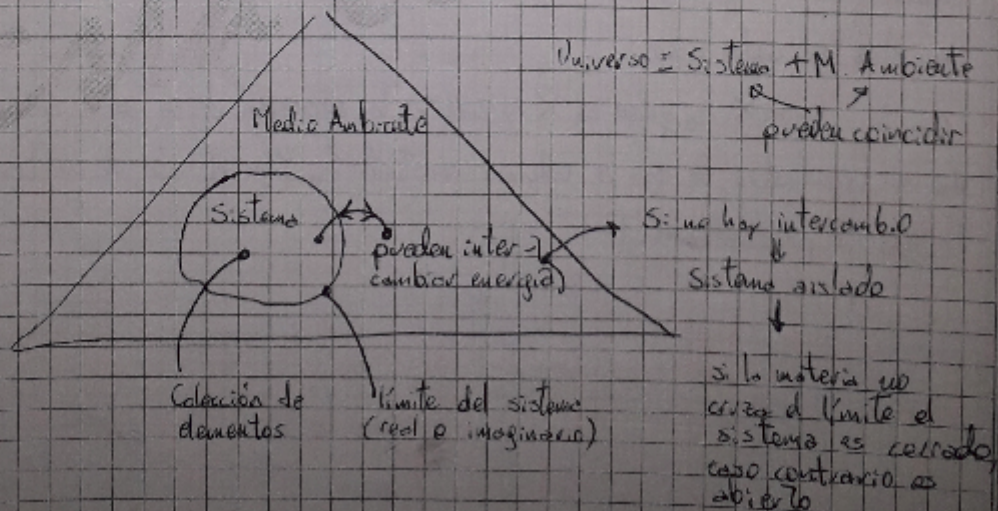 Universo = Sistema + M. Ambiente
pueden coincidir
Medio Ambiente
Sistema
pueden inter-
cambiar energia
Si no hay intercambio
Sistema aislado
si la materia no
cruza el límite el
sistema es cerrado,
caso contrario es
abierto
Colección de
elementos
límite del sistema
(real o imaginario)